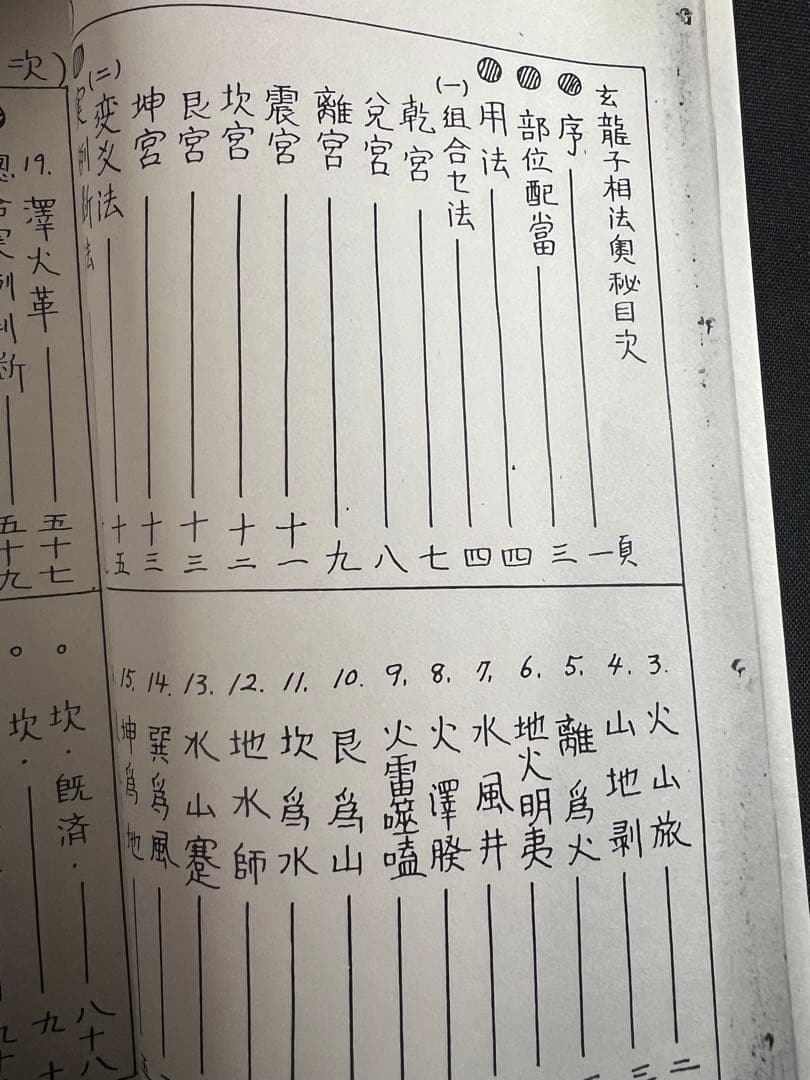 玄龍子相法奧秘目次
序 一頁
部位配當 三
用法 四
(一)組合セ法 四
乾宮 七
兌宮 八
離宮 九
震宮 十一
坎宮 十二
艮宮 十三
坤宮 十三
(二)変爻法 十五
断法
3. 火山旅 二
4. 山地剥 三
5. 離爲火
6. 地火明夷
7. 水風井
8. 火澤睽
9. 火雷噬嗑
10. 艮爲山
11. 坎爲水
12. 地水師
13. 水山蹇
14. 巽爲風
15. 坤爲地
次)
19. 澤火革 五十七
実例判断 五十九
坎・既済・ 八十八
坎・ 九十